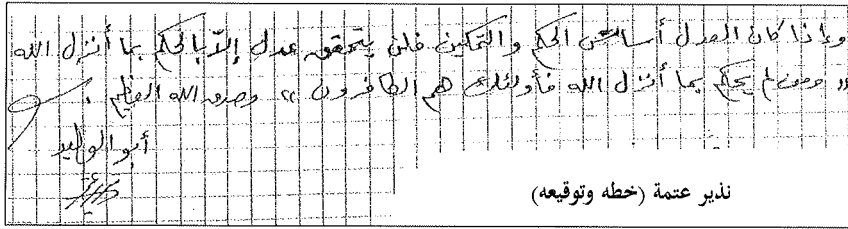 وإذا كان العدل أساس الحكم والتمكين فلن يتحقق عدل إلاّ بالحكم بما أنزل الله
« ومن لم يحكم بما أنزل الله فأولئك هم الكافرون » وصدق الله العظيم .
أبو الوليد
نذير عتمة (خطه وتوقيعه)